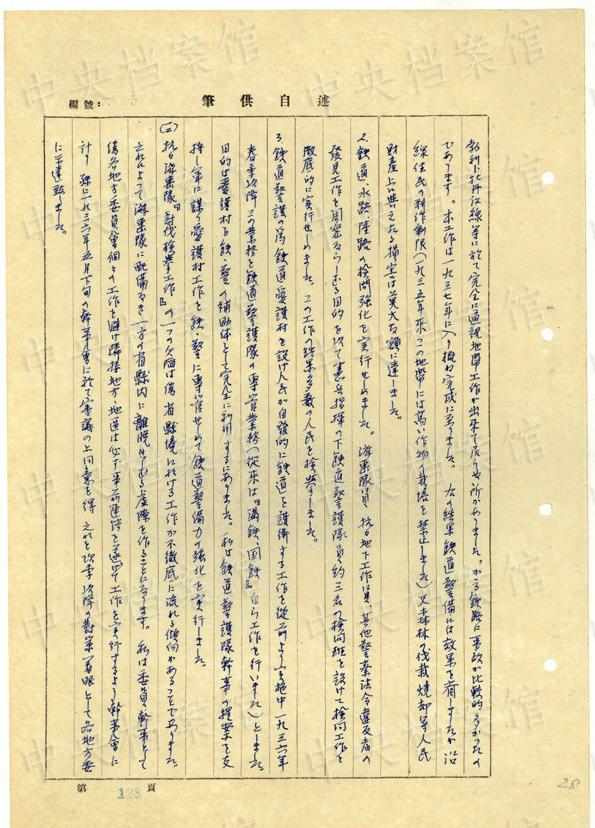 述自供筆
編號:
敦圖、牡丹江線等に於て完全に通視地帯工作が出来て居らぬ所がありました。かる鉄路に事故が比較的多かったの
であります。本工作は一九三七年に入り概ね完成に至りました。右の結果鉄道警備には効果を齎しましたが沿
線住民の耕作制限(一九三五年来この地帯には高い作物の栽培を禁止しました)又森林の伐栽焼却等人民
財産上に與えたる損害は莫大な額に達しました。
2、鉄道、水路、陸路の検問強化を実行せしめました。潜棄隊員、抗日地下工作員、其他警察法令違反者の
発見工作を周密ならしむる目的を以て憲兵指揮の下鉄道警護隊員約三名の検問班を設けて検問工作を
徹底的に実行せしめました。この工作の結果多数の人民を検挙しました。
3、鉄道警護の為鉄道愛護村を設け人民が自発的に鉄道を護衛する工作を従前より実施中一九三六年
春季以降この業務を鉄道警護隊の専管業務(従来は『満鉄、国鉄』自ら工作を行いました)としました。
目的は愛護村を鉄、警の補助体として完全に利用するにありました。私は鉄道警護隊幹事の提案を支
持し第に諜り愛護村工作を鉄、警に専管せしめて鉄道警備力の強化を実行しました。
(二)抗日海棄隊『討伐検挙工作』の一つの欠陥は偽省縣境に於ける工作が不徹底に流れる傾向があることでありました。
これによって海棄隊に配備なき一方の省縣内に離脱せしむる虚隙を作ることになります。私は委員、幹事として
偽各地方委員会個々の工作を避け隣接地方、地道は必ず事前連絡を遂げて工作を実行するよう幹事会に
計り 殊に一九三六年五月下旬の幹事会に於て審議の上同意を得 之れを次季以降の対策着眼として各地方委
に示達致しました。
第 128 頁
28
中央档案馆